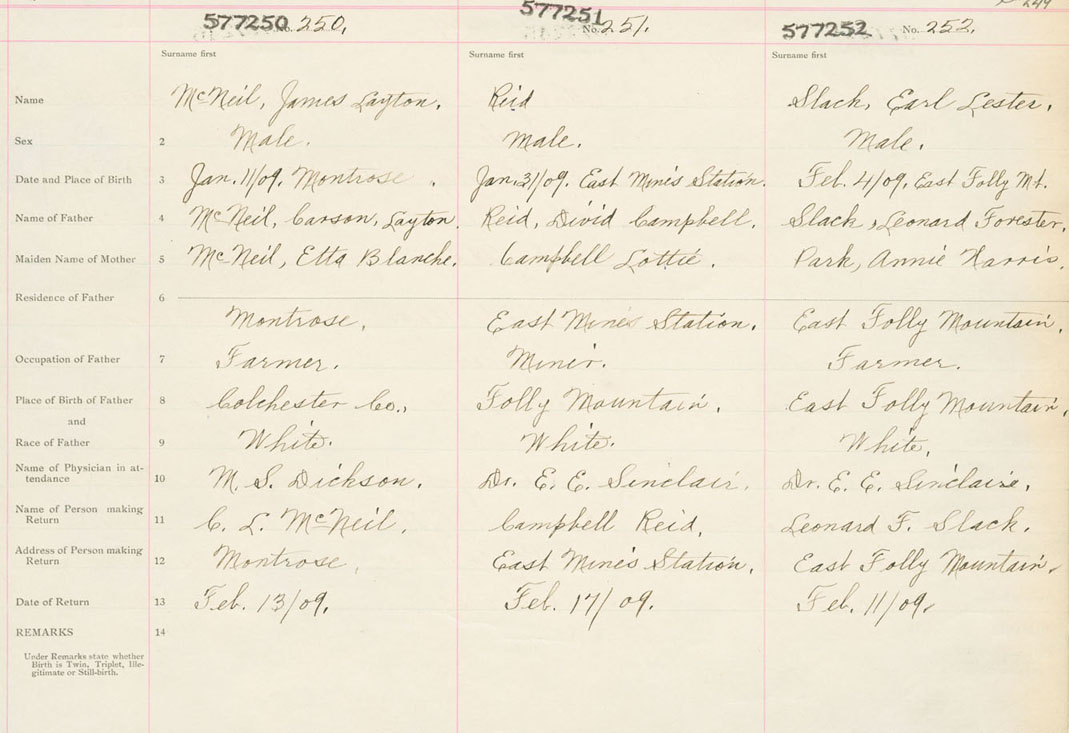 249
577250 No. 250.
577251 No. 251.
577252 No. 252.
Surname first
Surname first
Surname first
Name McNeil, James Layton. Reid Slack, Earl Lester.
Sex 2 Male. Male. Male.
Date and Place of Birth 3 Jan. 11/09. Montrose. Jan. 31/09. East Mines Station. Feb. 4/09, East Folly Mt.
Name of Father 4 McNeil, Carson, Layton. Reid, Divid Campbell. Slack, Leonard Forester.
Maiden Name of Mother 5 McNeil, Etta Blanche. Campbell Lottie. Park, Annie Harris.
Residence of Father 6
Montrose. East Mines Station. East Folly Mountain.
Occupation of Father 7 Farmer. Miner. Farmer.
Place of Birth of Father 8 Colchester Co., Folly Mountain. East Folly Mountain.
and
Race of Father 9 White. White. White.
Name of Physician in at-
tendance 10 M. S. Dickson. Dr. E. E. Sinclair. Dr. E. E. Sinclaire.
Name of Person making
Return 11 C. L. McNeil. Campbell Reid. Leonard F. Slack.
Address of Person making
Return 12 Montrose. East Mines Station. East Folly Mountain.
Date of Return 13 Feb. 13/09. Feb. 17/09. Feb. 11/09.
REMARKS 14
Under Remarks state whether
Birth is Twin, Triplet, Ille-
gitimate or Still-birth.